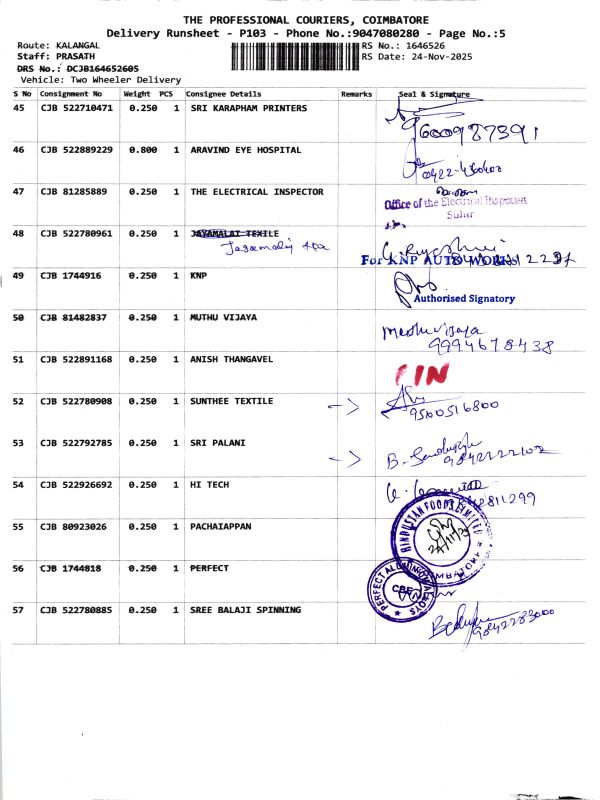 THE PROFESSIONAL COURIERS, COIMBATORE
Delivery Runsheet - P103 - Phone No.:9047080280 - Page No.:5
Route: KALANGAL RS No.: 1646526
Staff: PRASATH RS Date: 24-Nov-2025
DRS No.: DCJB164652605
Vehicle: Two Wheeler Delivery
S No Consignment No Weight PCS Consignee Details Remarks Seal & Signature
45 CJB 522710471 0.250 1 SRI KARAPHAM PRINTERS
9600987391
46 CJB 522889229 0.800 1 ARAVIND EYE HOSPITAL
0422-4360400
47 CJB 81285889 0.250 1 THE ELECTRICAL INSPECTOR
Office of the Electrical Inspector
Sulur
48 CJB 522780961 0.250 1 JAYAMALAI TEXILE
For KNP AUTO WORKS
49 CJB 1744916 0.250 1 KNP
Authorised Signatory
50 CJB 81482837 0.250 1 MUTHU VIJAYA
Muthuvijaya
9994678438
51 CJB 522891168 0.250 1 ANISH THANGAVEL
IN
52 CJB 522780908 0.250 1 SUNTHEE TEXTILE
9500516800
53 CJB 522792785 0.250 1 SRI PALANI
54 CJB 522926692 0.250 1 HI TECH
55 CJB 80923026 0.250 1 PACHAIAPPAN
HINDUSTAN FOODS LIMITED
56 CJB 1744818 0.250 1 PERFECT
CBE
57 CJB 522780885 0.250 1 SREE BALAJI SPINNING
9842283000